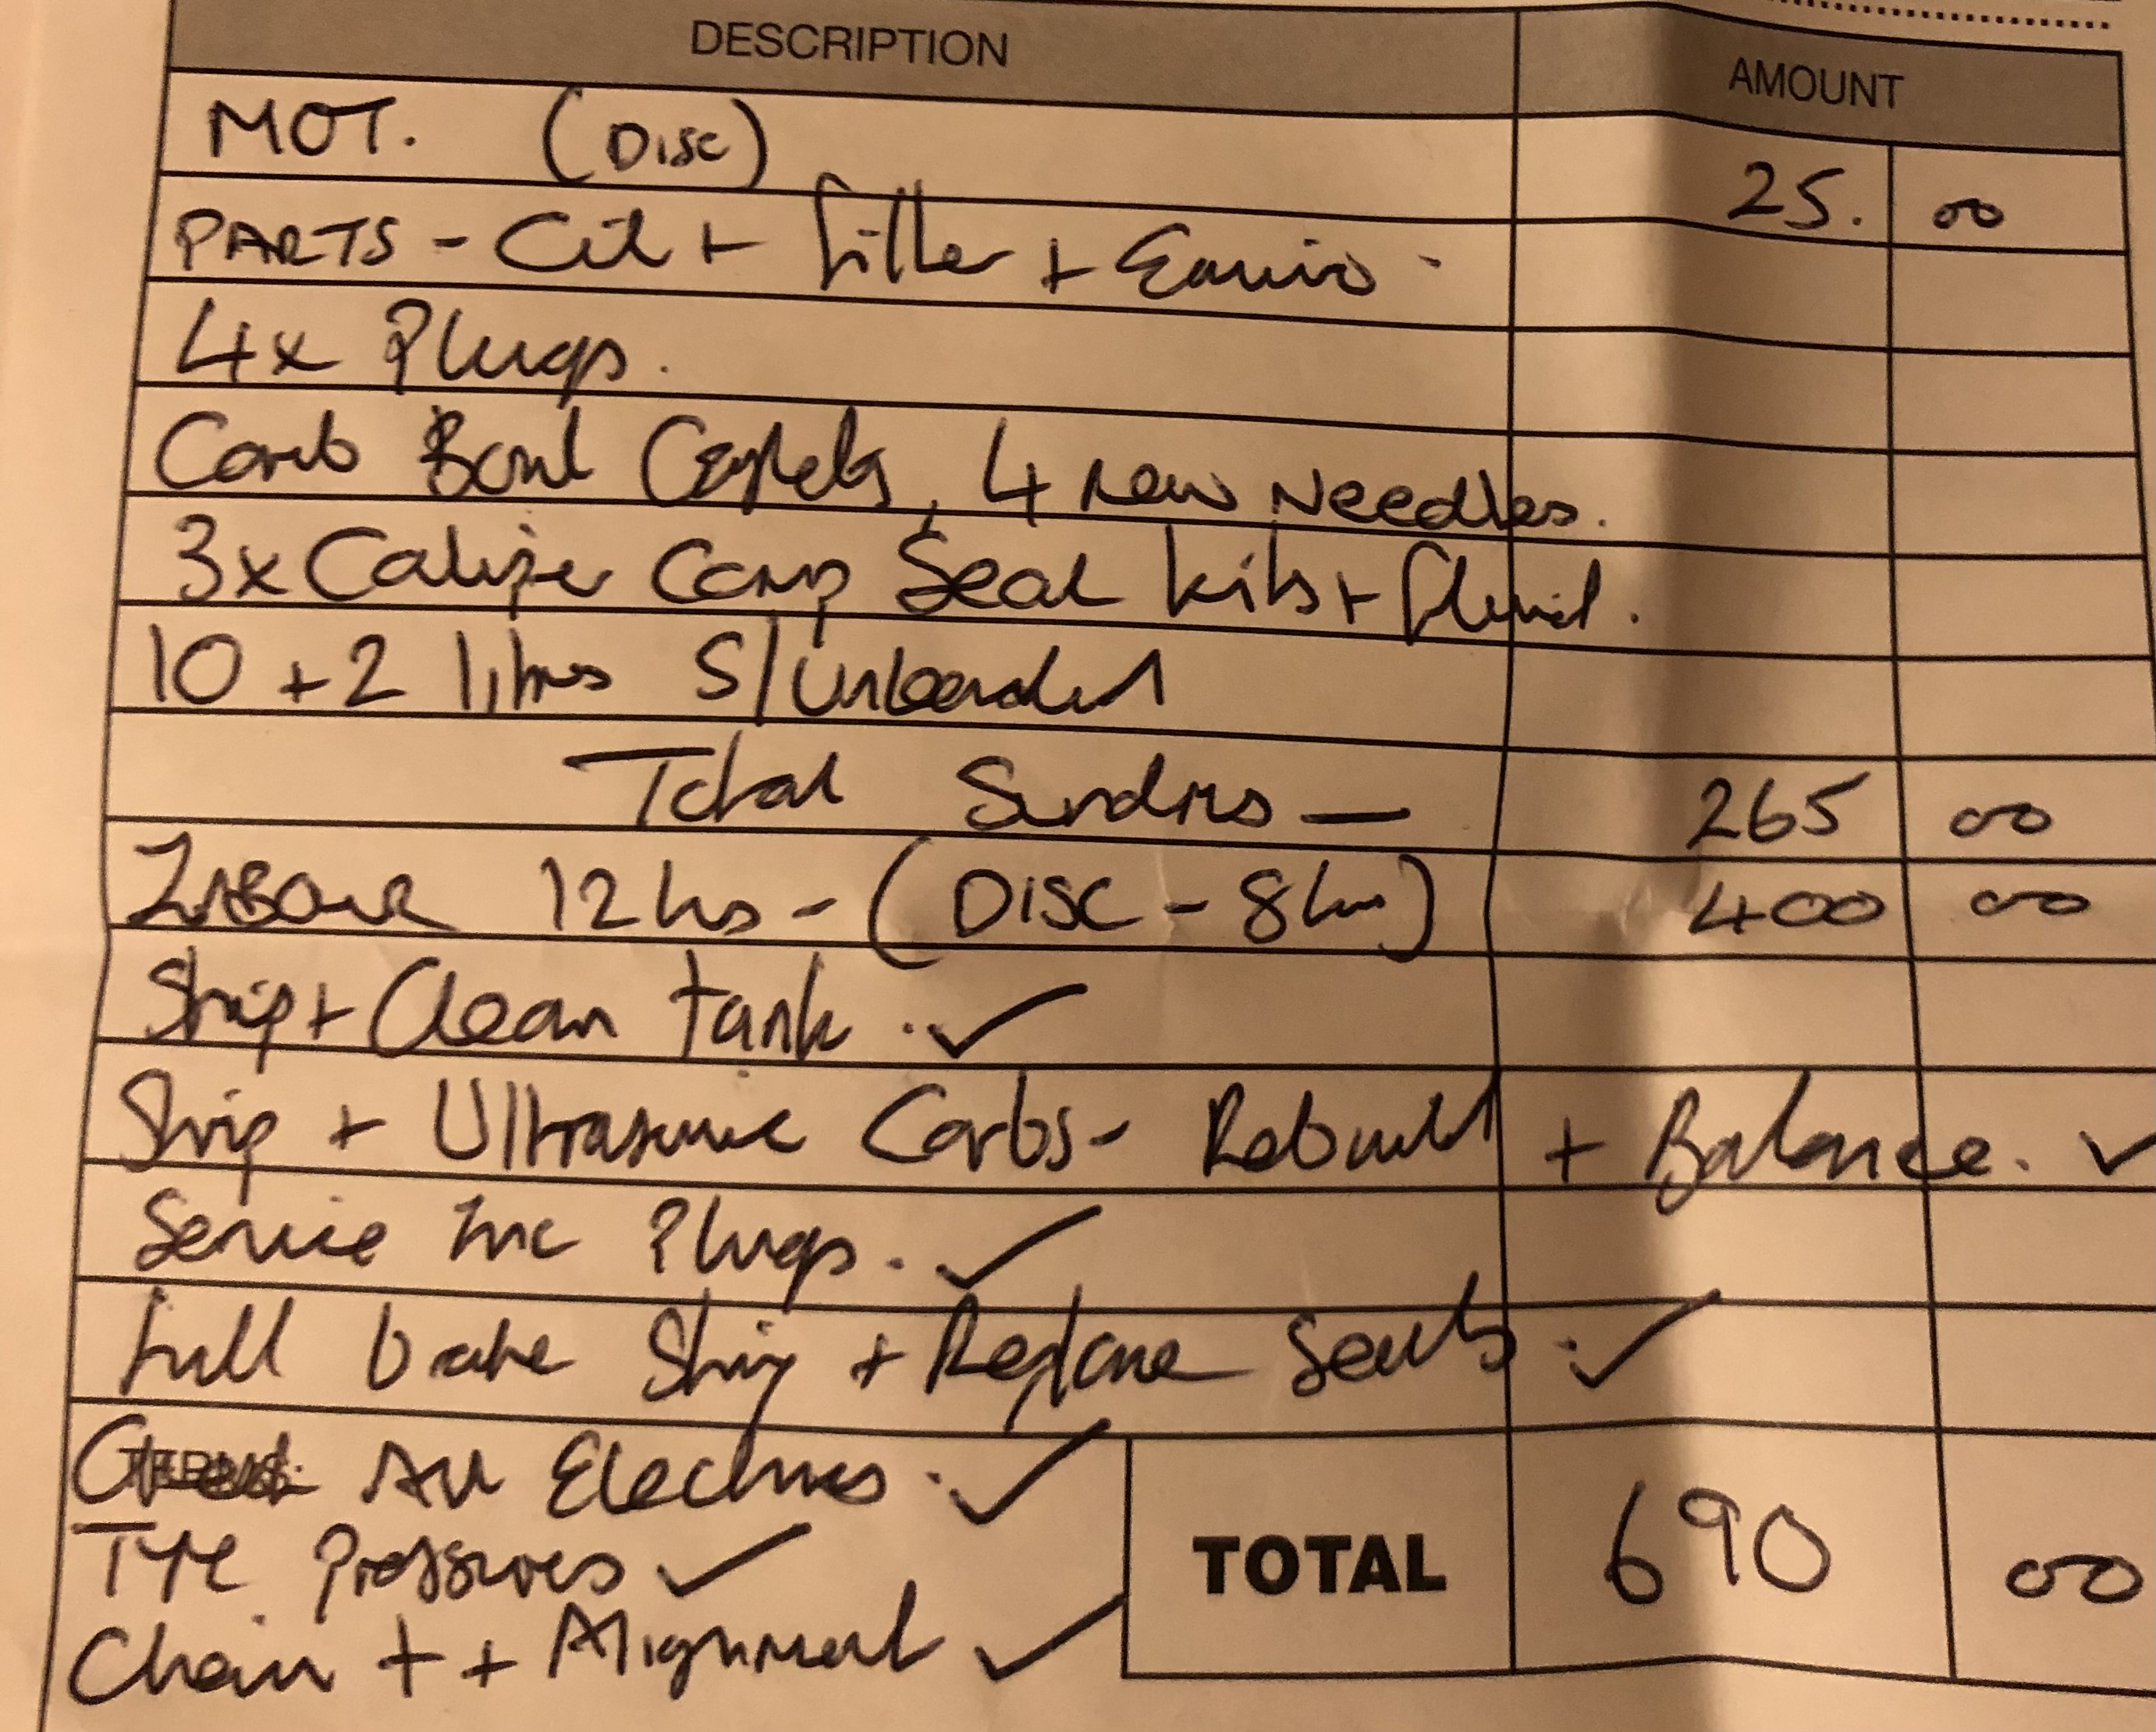 DESCRIPTION AMOUNT
MOT. (DISC) 25. 00
PARTS - Oil + filter + Enviro -
4x Plugs.
Carb Bowl Gaskets, 4 new Needles.
3x Caliper Comp Seal kits + fluid.
10 + 2 litres S/Unleaded
Total Sundries — 265 00
LABOUR 12 hrs - (DISC - 8hrs) 400 00
Strip + Clean tank. ✓
Strip + Ultrasonic Carbs - Rebuild + Balance. ✓
Service Inc Plugs. ✓
Full brake Strip + Replace Seals. ✓
Check All Electrics. ✓
Tyre Pressures ✓
TOTAL 690 00
Chain + + Alignment ✓